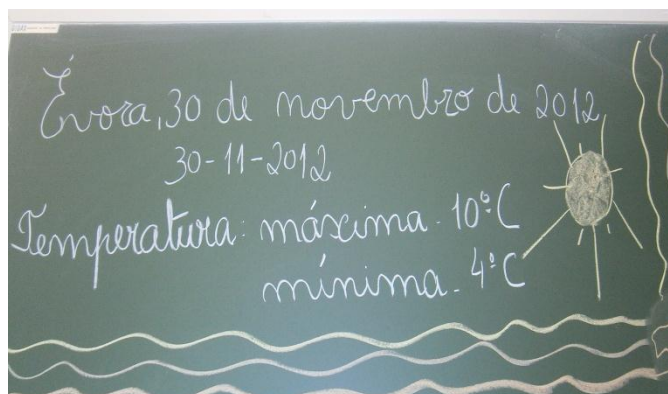 Évora, 30 de novembro de 2012
30-11-2012
Temperatura: máxima - 10ºC
mínima - 4ºC